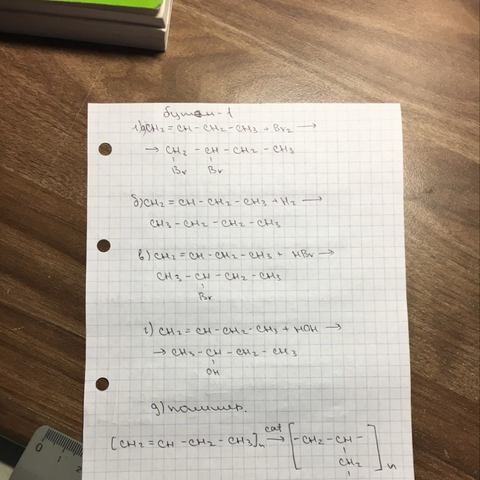 бутен-1
1) а) CH2 = CH - CH2 - CH3 + Br2 →
→ CH2 - CH - CH2 - CH3
Br Br
б) CH2 = CH - CH2 - CH3 + H2 →
CH3 - CH2 - CH2 - CH3
в) CH2 = CH - CH2 - CH3 + HBr →
CH3 - CH - CH2 - CH3
Br
г) CH2 = CH - CH2 - CH3 + HOH →
→ CH3 - CH - CH2 - CH3
OH
д) полимер.
[CH2 = CH - CH2 - CH3]n cat→ [-CH2 - CH -]n
CH2
0 1 2